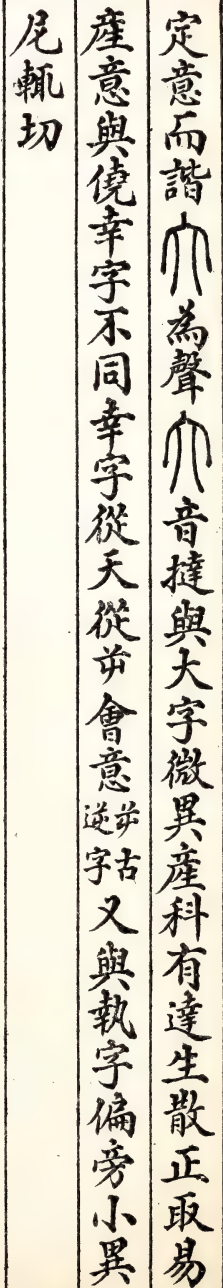 定意而諧大為聲大音撻與大字微異產科有達生散正取易
產意與僥幸字不同幸字從夭從屰會意屰古逆字又與執字偏旁小異
尼輒切